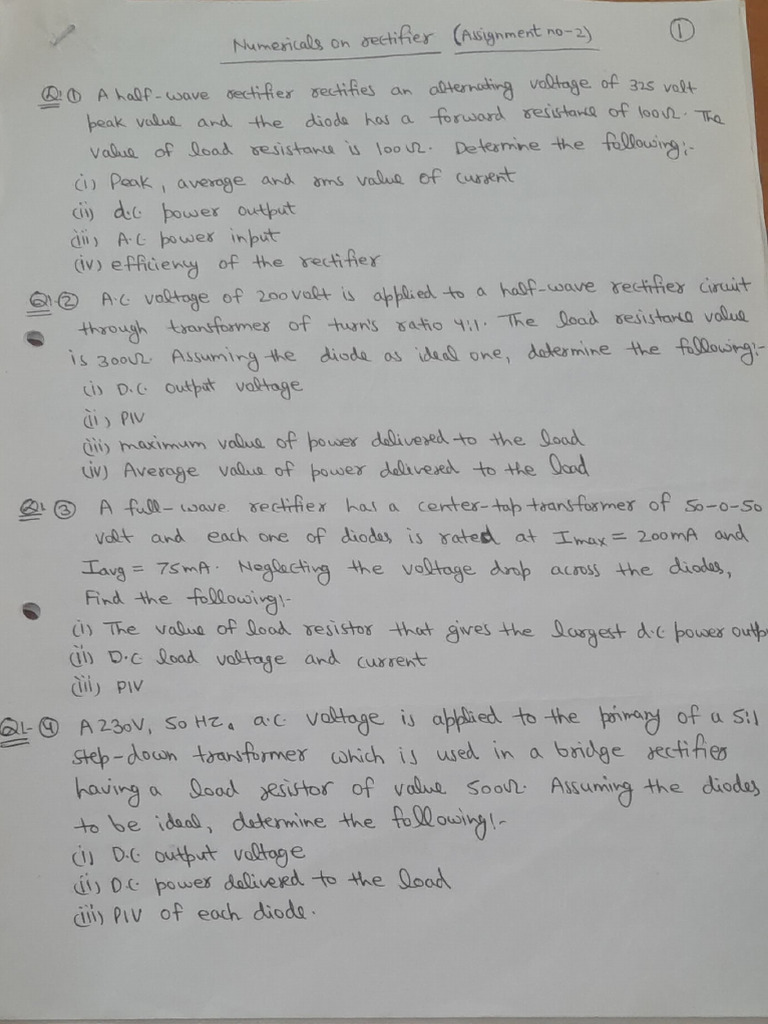 Numericals on rectifier (Assignment no-2) ①
Q:① A half-wave rectifier rectifies an alternating voltage of 325 volt
peak value and the diode has a forward resistance of 100Ω. The
value of load resistance is 100Ω. Determine the following:-
(i) Peak, average and rms value of current
(ii) d.c. power output
(iii) A.C. power input
(iv) efficiency of the rectifier
Q:② A.C. voltage of 200 volt is applied to a half-wave rectifier circuit
through transformer of turn's ratio 4:1. The load resistance value
is 300Ω. Assuming the diode as ideal one, determine the following:-
(i) D.C. output voltage
(ii) PIV
(iii) maximum value of power delivered to the load
(iv) Average value of power delivered to the load
Q:③ A full-wave rectifier has a center-top transformer of 50-0-50
volt and each one of diodes is rated at Imax = 200mA and
Iavg = 75mA. Neglecting the voltage drop across the diodes,
Find the following:-
(i) The value of load resistor that gives the largest d.c power outp
(ii) D.C load voltage and current
(iii) PIV
Q:-④ A 230V, 50 HZ, a.c. voltage is applied to the primary of a 5:1
step-down transformer which is used in a bridge rectifier
having a load resistor of value 500Ω. Assuming the diodes
to be ideal, determine the following:-
(i) D.C. output voltage
(ii) D.C. power delivered to the load
(iii) PIV of each diode.